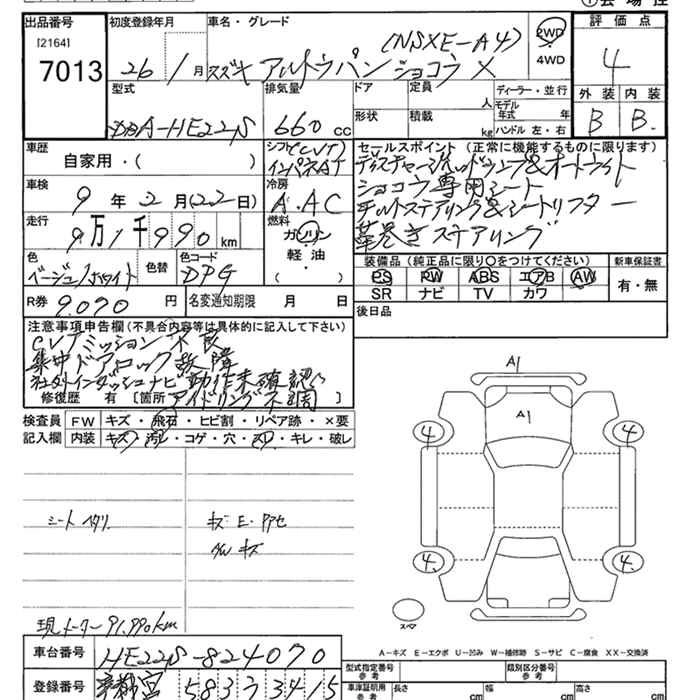 出品番号 初度登録年月 車名・グレード 評価点
[2164] (NSXE-A4) 2WD
7013 26/1月 スズキ アルトラパンショコラ X 4WD 4
型式 排気量 ドア 定員 人 ディーラー・並行 外装 内装
DBA-HE22S 660 cc 形状 積載 kg モデル年式 年 ハンドル 左・右 B B
車歴 シフト CVT セールスポイント(正常に機能するものに限ります)
自家用・( ) インパネAT ディスチャージヘッドランプ&オートライト
車検 冷房 ショコラ専用シート
9年2月(22日) A.AC チルトステアリング&シートリフター
走行 燃料 革巻きステアリング
9万1千990km ガソリン
色 色替 色コード 軽油 装備品(純正品に限り○をつけてください) 新車保証書
ベージュ/ホワイト DPG ( ) PS PW ABS エアB AW 有・無
R券 9,070円 名変通知期限 月 日 SR ナビ TV カワ
注意事項申告欄(不具合内容等は具体的に記入して下さい) 後日品
CVTミッション不良
集中ドアロック故障
社外インダッシュナビ動作未確認
修復歴 有 [箇所 アイドリング不調 ]
検査員 FW キズ・飛石・ヒビ割・リペア跡・×要
記入欄 内装 キズ・汚レ・コゲ・穴・スレ・キレ・破レ
A1
A1
4 4
シートヘタリ キズ E.アアセ
AWキズ
4. 4.
現メーター 91,990km スペア
A-キズ E-エクボ U-凹み W-補修跡 S-サビ C-腐食 XX-交換済
車台番号 HE22S-824070 型式指定番号 参考 類別区分番号 参考
登録番号 宇都宮 583 ラ 3415 車庫証明用 参考 長さ cm 幅 cm 高さ cm